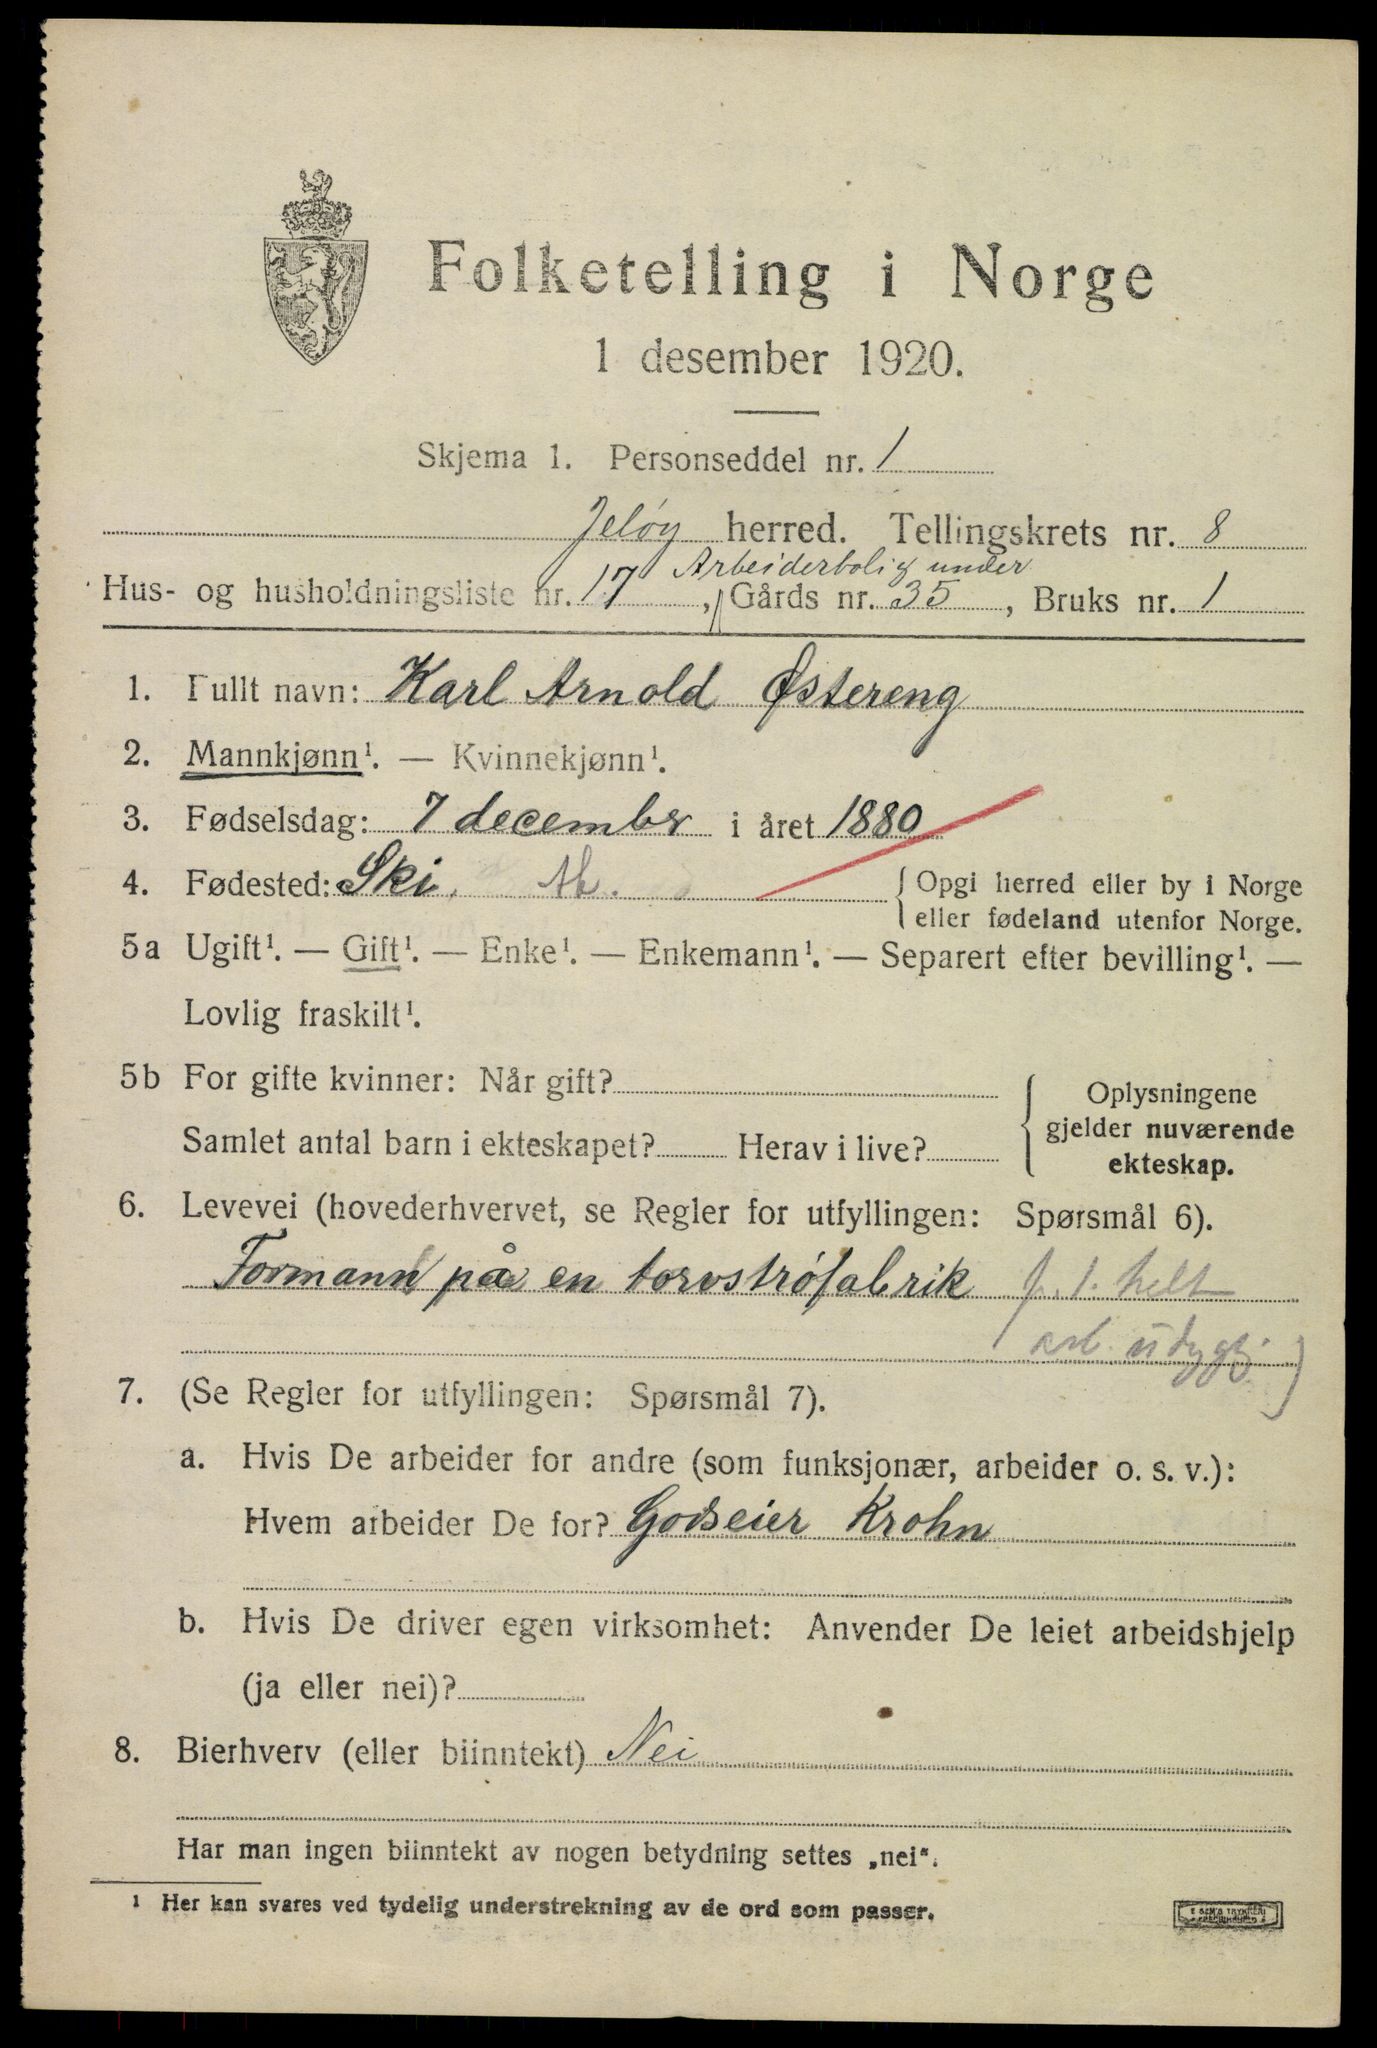 Folketelling i Norge
1 desember 1920.
Skjema 1. Personseddel nr. 1
Jeløy herred. Tellingskrets nr. 8
Arbeiderbolig under
Hus- og husholdningsliste nr. 17, Gårds nr. 35, Bruks nr. 1
1. Fullt navn: Karl Arnold Østereng
2. Mannkjønn¹. — Kvinnekjønn¹.
3. Fødselsdag: 7 decembr i året 1880
4. Fødested: Ski. Ak. { Opgi herred eller by i Norge
eller fødeland utenfor Norge.
5a Ugift¹. — Gift¹. — Enke¹. — Enkemann¹. — Separert efter bevilling¹. —
Lovlig fraskilt¹.
5b For gifte kvinner: Når gift?
Samlet antal barn i ekteskapet? Herav i live?
{ Oplysningene
gjelder nuværende
ekteskap.
6. Levevei (hovederhvervet, se Regler for utfyllingen: Spørsmål 6).
Formann på en torvströfabrik f. t. helt
arb. udygtig)
7. (Se Regler for utfyllingen: Spørsmål 7).
a. Hvis De arbeider for andre (som funksjonær, arbeider o. s. v.):
Hvem arbeider De for? Godseier Krohn
b. Hvis De driver egen virksomhet: Anvender De leiet arbeidshjelp
(ja eller nei)?
8. Bierhverv (eller biinntekt) Nei
Har man ingen biinntekt av nogen betydning settes „nei“.
¹ Her kan svares ved tydelig understrekning av de ord som passer.